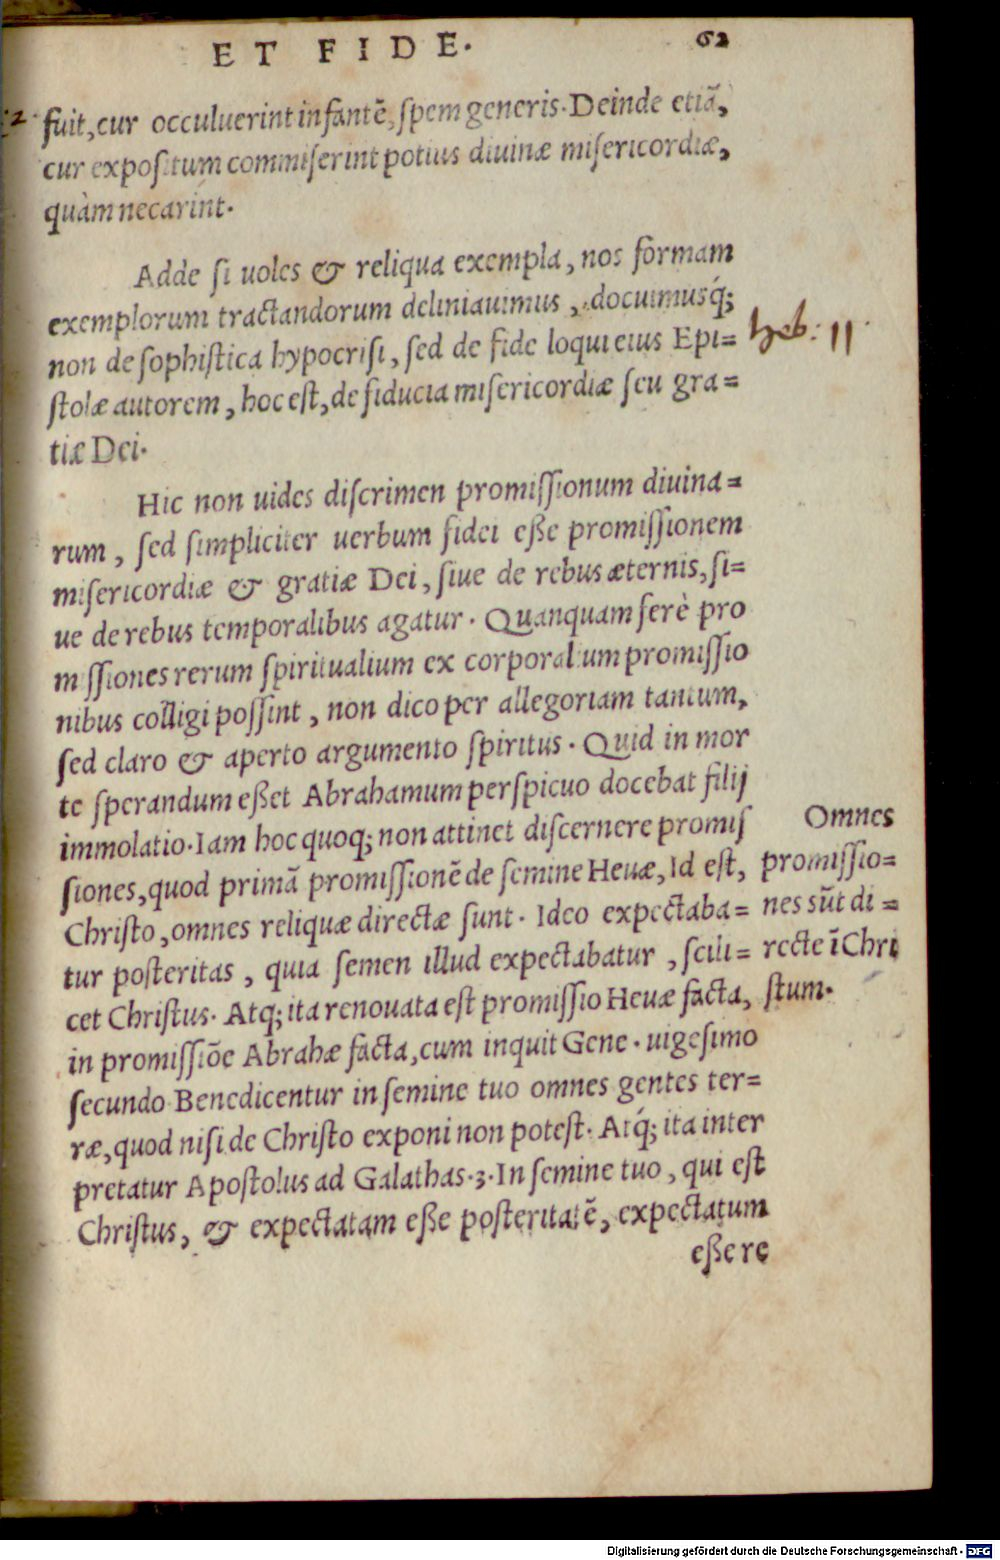 ET FIDE. 62
fuit, cur occuluerint infantẽ, spem generis. Deinde etiã,
cur expositum commiserint potius diuinæ misericordiæ,
quàm necarint.
Adde si uoles & reliqua exempla, nos formam
exemplorum tractandorum deliniauimus, docuimusq́;
non de sophistica hypocrisi, sed de fide loqui eius Epi=
stolæ autorem, hoc est, de fiducia misericordiæ seu gra=
tiæ Dei.
Heb: 11
Hic non uides discrimen promissionum diuina=
rum, sed simpliciter uerbum fidei eße promissionem
misericordiæ & gratiæ Dei, siue de rebus æternis, si=
ue de rebus temporalibus agatur. Quanquam ferè pro
missiones rerum spiritualium ex corporalium promissio
nibus colligi possint, non dico per allegoriam tantum,
sed claro & aperto argumento spiritus. Quid in mor
te sperandum eßet Abrahamum perspicuo docebat filij
immolatio. Iam hoc quoq; non attinet discernere promis
siones, quod primã promissionẽ de semine Heuæ, Id est,
Christo, omnes reliquæ directæ sunt. Ideo expectaba=
tur posteritas, quia semen illud expectabatur, scili=
cet Christus. Atq; ita renouata est promissio Heuæ facta,
in promissiõe Abrahæ facta, cum inquit Gene. uigesimo
secundo Benedicentur in semine tuo omnes gentes ter=
ræ, quod nisi de Christo exponi non potest. Atq́; ita inter
pretatur Apostolus ad Galathas. 3. In semine tuo, qui est
Christus, & expectatam eße posteritatẽ, expectatum
eße re
Omnes
promissio=
nes sũt di=
recte ĩ Chri
stum.
Digitalisierung gefördert durch die Deutsche Forschungsgemeinschaft - DFG